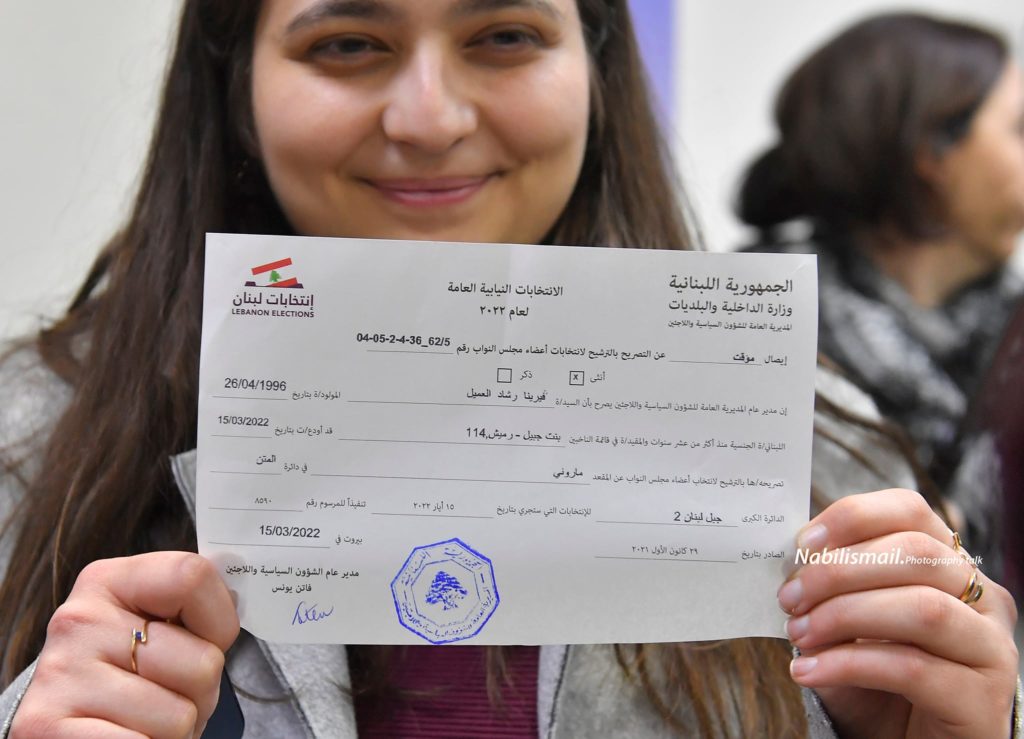 الجمهورية اللبنانية
وزارة الداخلية والبلديات
المديرية العامة للشؤون السياسية واللاجئين
الانتخابات النيابية العامة
لعام ٢٠٢٢
إنتخابات لبنان
LEBANON ELECTIONS
إيصال موقت عن التصريح بالترشيح لانتخابات أعضاء مجلس النواب رقم 04-05-2-4-36_62/5
أنثى x ذكر
إن مدير عام المديرية العامة للشؤون السياسية واللاجئين يصرح بأن السيد/ة ڤيرينا رشاد العميل المولود/ة بتاريخ 26/04/1996
اللبناني/ة الجنسية منذ أكثر من عشر سنوات والمقيد/ة في قائمة الناخبين بنت جبيل - رميش,114 قد أودع/ت بتاريخ 15/03/2022
تصريحه/ها بالترشيح لانتخاب أعضاء مجلس النواب عن المقعد ماروني في دائرة المتن
الدائرة الكبرى جبل لبنان 2 للإنتخابات التي ستجري بتاريخ ١٥ أيار ٢٠٢٢ تنفيذاً للمرسوم رقم ٨٥٩٠
الصادر بتاريخ ٢٩ كانون الأول ٢٠٢١ بيروت في 15/03/2022
مدير عام الشؤون السياسية واللاجئين
فاتن يونس
Nabilismail.Photography talk